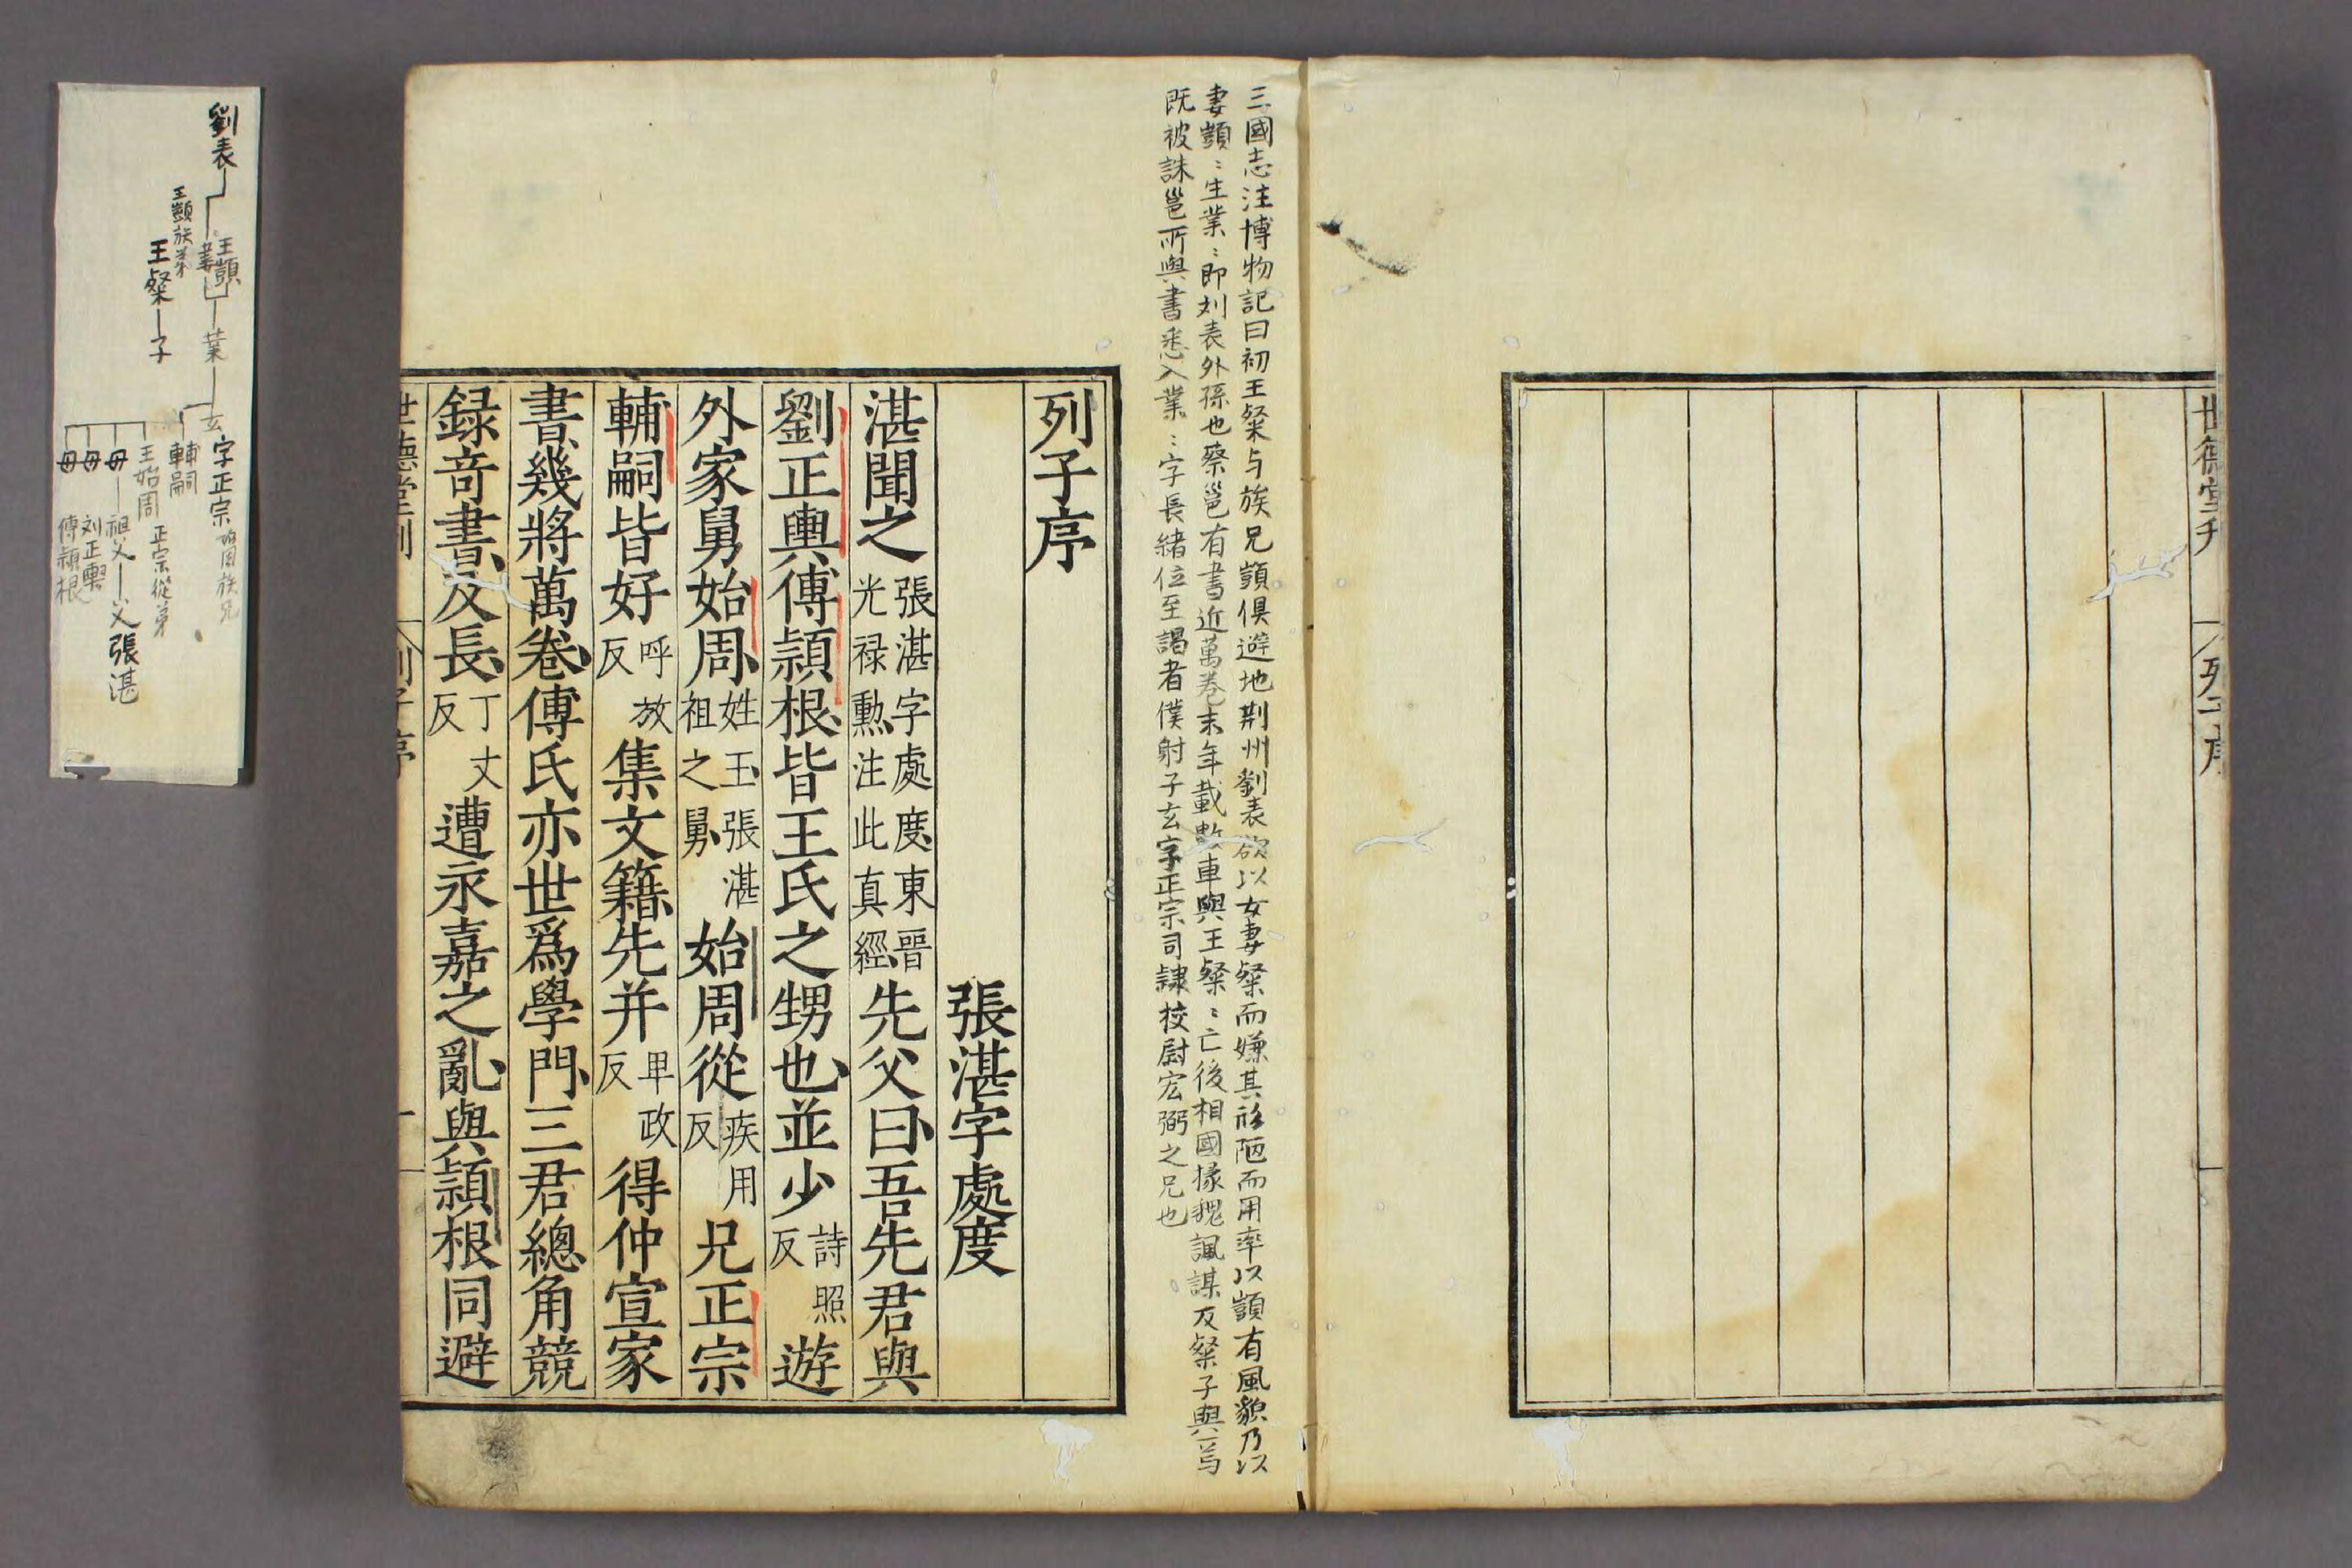 世德堂刊
列子序
三國志注博物記曰初王粲与族兄顗俱避地荆州劉表欲以女妻粲而嫌其形陋而用率以顗有風貌乃以
妻顗〻生業〻即刘表外孫也蔡邕有書近萬卷末年載數車與王粲〻亡後相國掾魏諷謀反粲子與焉
既被誅邕所與書悉入業〻字長緒位至謁者僕射子玄字正宗司隸校尉宏弼之兄也
列子序
張湛字處度
湛聞之張湛字處度東晉光禄勳注此真經先父曰吾先君與
劉正輿傅頴根皆王氏之甥也並少詩照反遊
外家舅始周姓王張湛祖之舅始周從疾用反兄正宗
輔嗣皆好呼放反集文籍先并卑政反得仲宣家
書幾將萬卷傅氏亦世爲學門三君總角競
録奇書及長丁丈反遭永嘉之亂與頴根同避
世德堂刊
列子序
一
劉表
王顗
妻
王顗族弟
王粲
子
業
玄
字正宗
始周族兄
輔嗣
王始周
正宗從弟
母
母
母
祖父
父
張湛
刘正輿
傅頴根